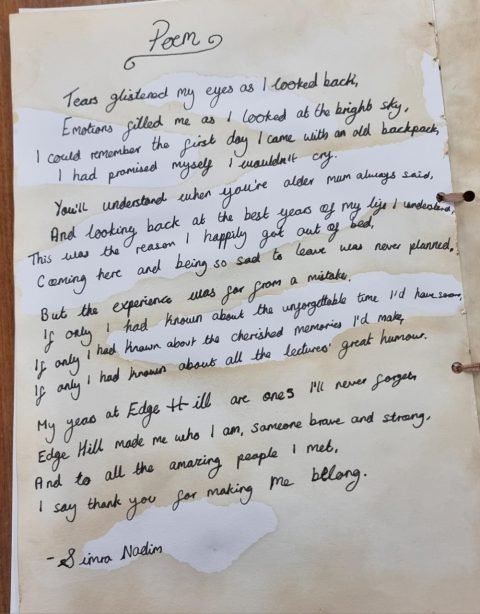 Poem
Tears glistened my eyes as I looked back,
Emotions filled me as I looked at the bright sky,
I could remember the first day I came with an old backpack,
I had promised myself I wouldn't cry.
You'll understand when you're older mum always said,
And looking back at the best years of my life I understand,
This was the reason I happily got out of bed,
Coming here and being so sad to leave was never planned.
But the experience was far from a mistake,
If only I had known about the unforgettable time I'd have soon,
If only I had known about the cherished memories I'd make,
If only I had known about all the lectures' great humour.
My years at Edge Hill are ones I'll never forget,
Edge Hill made me who I am, someone brave and strong,
And to all the amazing people I met,
I say thank you for making me belong.
- Simra Nadim